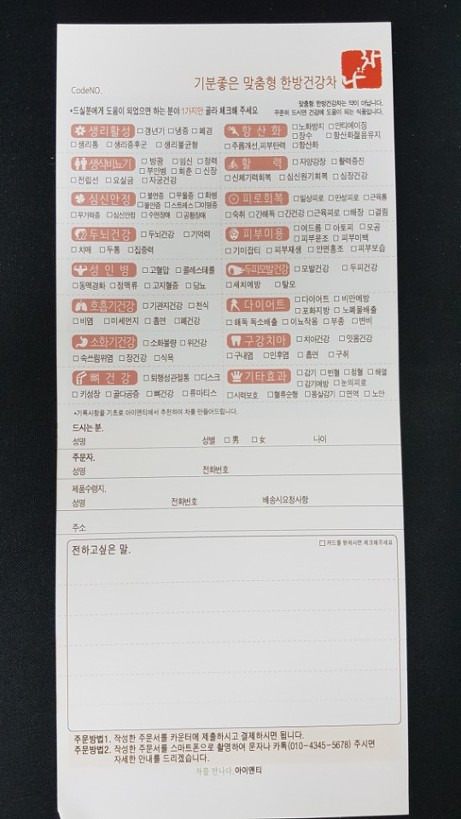 차나
CodeNO.
기분좋은 맞춤형 한방건강차
맞춤형 한방건강차는 약이 아닙니다.
꾸준히 드시면 건강에 도움이 되는 식품입니다.
•드실분에게 도움이 되었으면 하는 분야 1가지만 골라 체크해 주세요
생리활성 □갱년기 □냉증 □폐경
□생리통 □생리증후군 □생리불균형
항산화 □노화방지 □안티에이징
□장수 □항산화젊음유지
□주름개선,피부탄력 □항산화
생식비뇨기 □방광 □임신 □정력
□부인병 □회춘 □신장
□전립선 □요실금 □자궁건강
활력 □자양강장 □활력증진
□신체기력회복 □심신원기회복 □심장건강
심신안정 □불면증 □우울증 □화병
□불안증 □스트레스 □이명증
□무기력증 □심신안정 □수면장애 □공황장애
피로회복 □일상피로 □만성피로 □근육통
□숙취 □간해독 □간건강 □근육피로 □해장 □결림
두뇌건강 □두뇌건강 □기억력
□치매 □두통 □집중력
피부미용 □여드름 □아토피 □모공
□피부윤조 □피부미백
□기미잡티 □피부재생 □안면홍조 □피부보습
성인병 □고혈압 □콜레스테롤
□동맥경화 □정맥류 □고지혈증 □당뇨
두피모발건강 □모발건강 □두피건강
□새치예방 □탈모
호흡기건강 □기관지건강 □천식
□비염 □미세먼지 □흡연 □폐건강
다이어트 □다이어트 □비만예방
□포화지방 □노폐물배출
□해독 독소배출 □이뇨작용 □부종 □변비
소화기건강 □소화불량 □위건강
□속쓰림위염 □장건강 □식욕
구강치아 □치아건강 □잇몸건강
□구내염 □인후염 □흡연 □구취
뼈건강 □퇴행성관절통 □디스크
□키성장 □골다공증 □뼈건강 □류마티스
기타효과 □감기 □빈혈 □청혈 □해열
□감기예방 □눈의피로
□시력보호 □혈류순행 □몸살감기 □면역 □노안
•기록사항을 기초로 아이엔티에서 추천하여 차를 만들어드립니다.
드시는 분.
성명 성별 □男 □女 나이
주문자.
성명 전화번호
제품수령지.
성명 전화번호 배송시요청사항
주소
전하고싶은 말.
□카드를 원하시면 체크해주세요
주문방법1. 작성한 주문서를 카운터에 제출하시고 결제하시면 됩니다.
주문방법2. 작성한 주문서를 스마트폰으로 촬영하여 문자나 카톡(010-4345-5678) 주시면
자세한 안내를 드리겠습니다.
차를 만나다 아이엔티